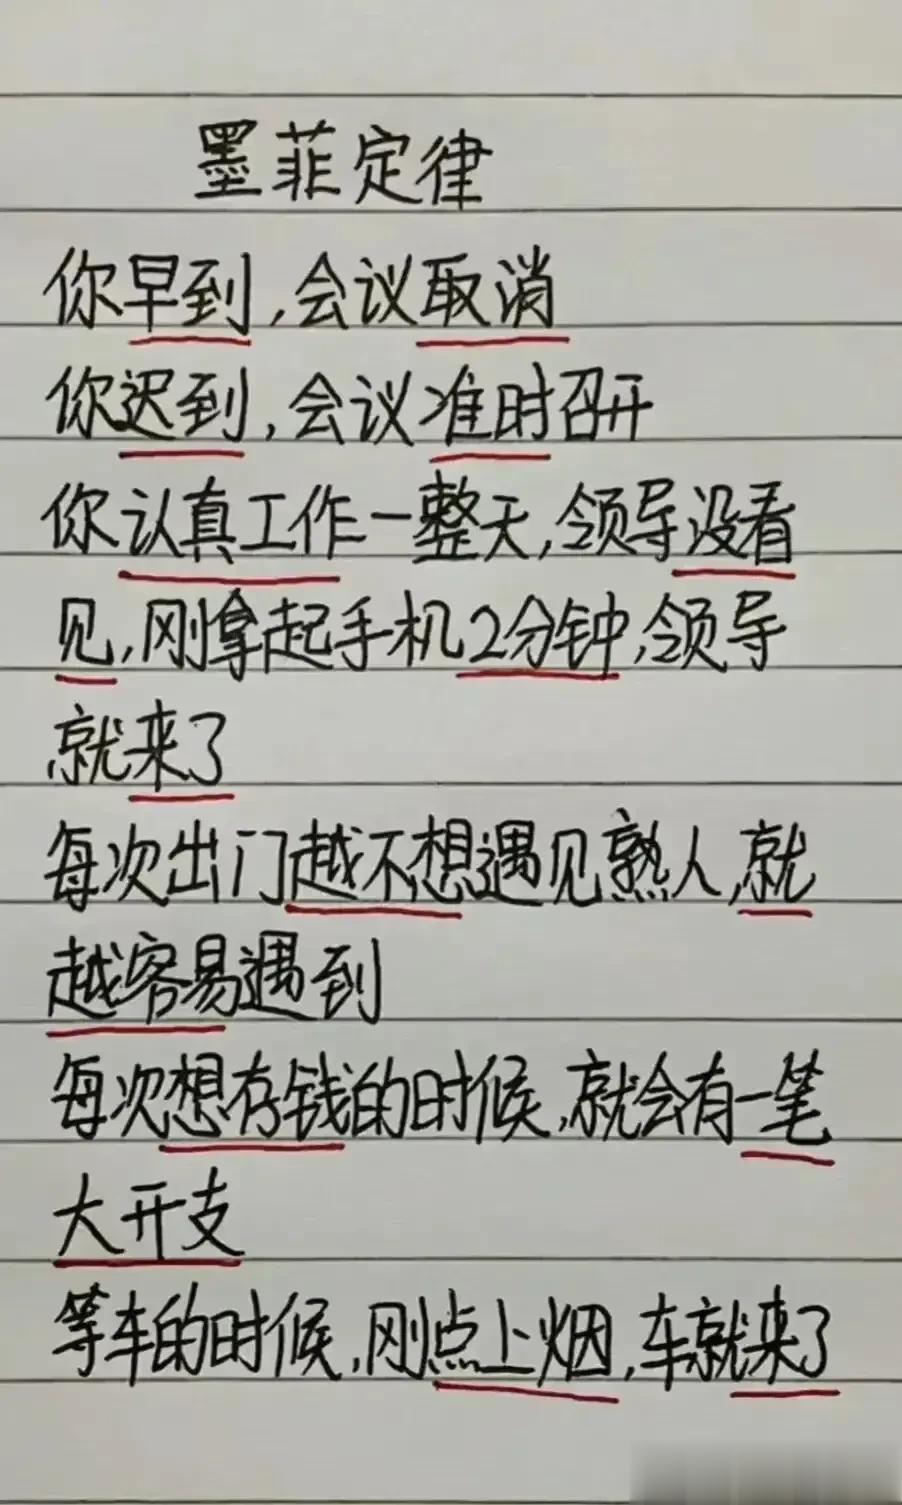 墨菲定律
你早到,会议取消
你迟到,会议准时召开
你认真工作一整天,领导没看
见,刚拿起手机2分钟,领导
就来了
每次出门越不想遇见熟人,就
越容易遇到
每次想存钱的时候,就会有一笔
大开支
等车的时候,刚点上烟,车就来了